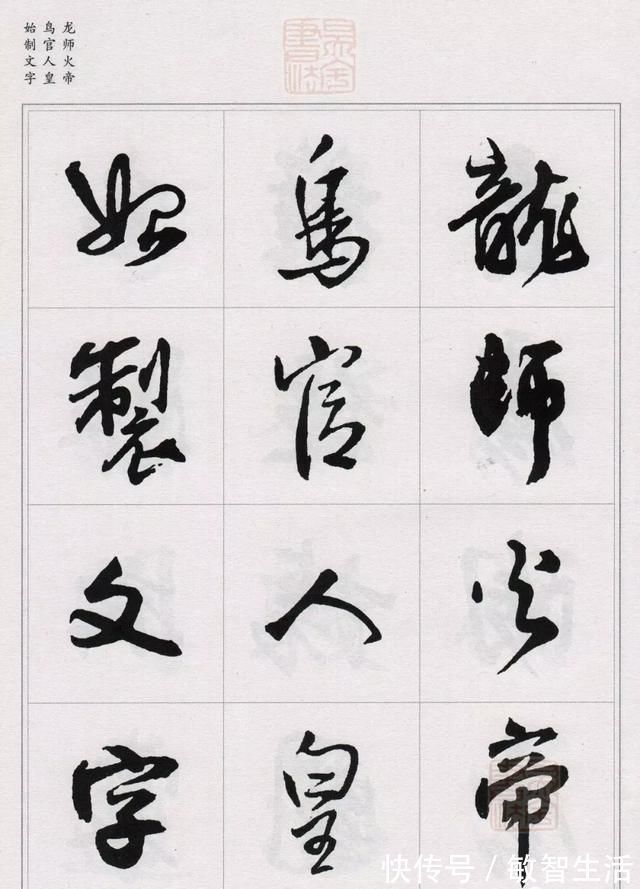 龙师火帝
鸟官人皇
始制文字
龍師火帝
鳥官人皇
始製文字
快传号／敏智生活